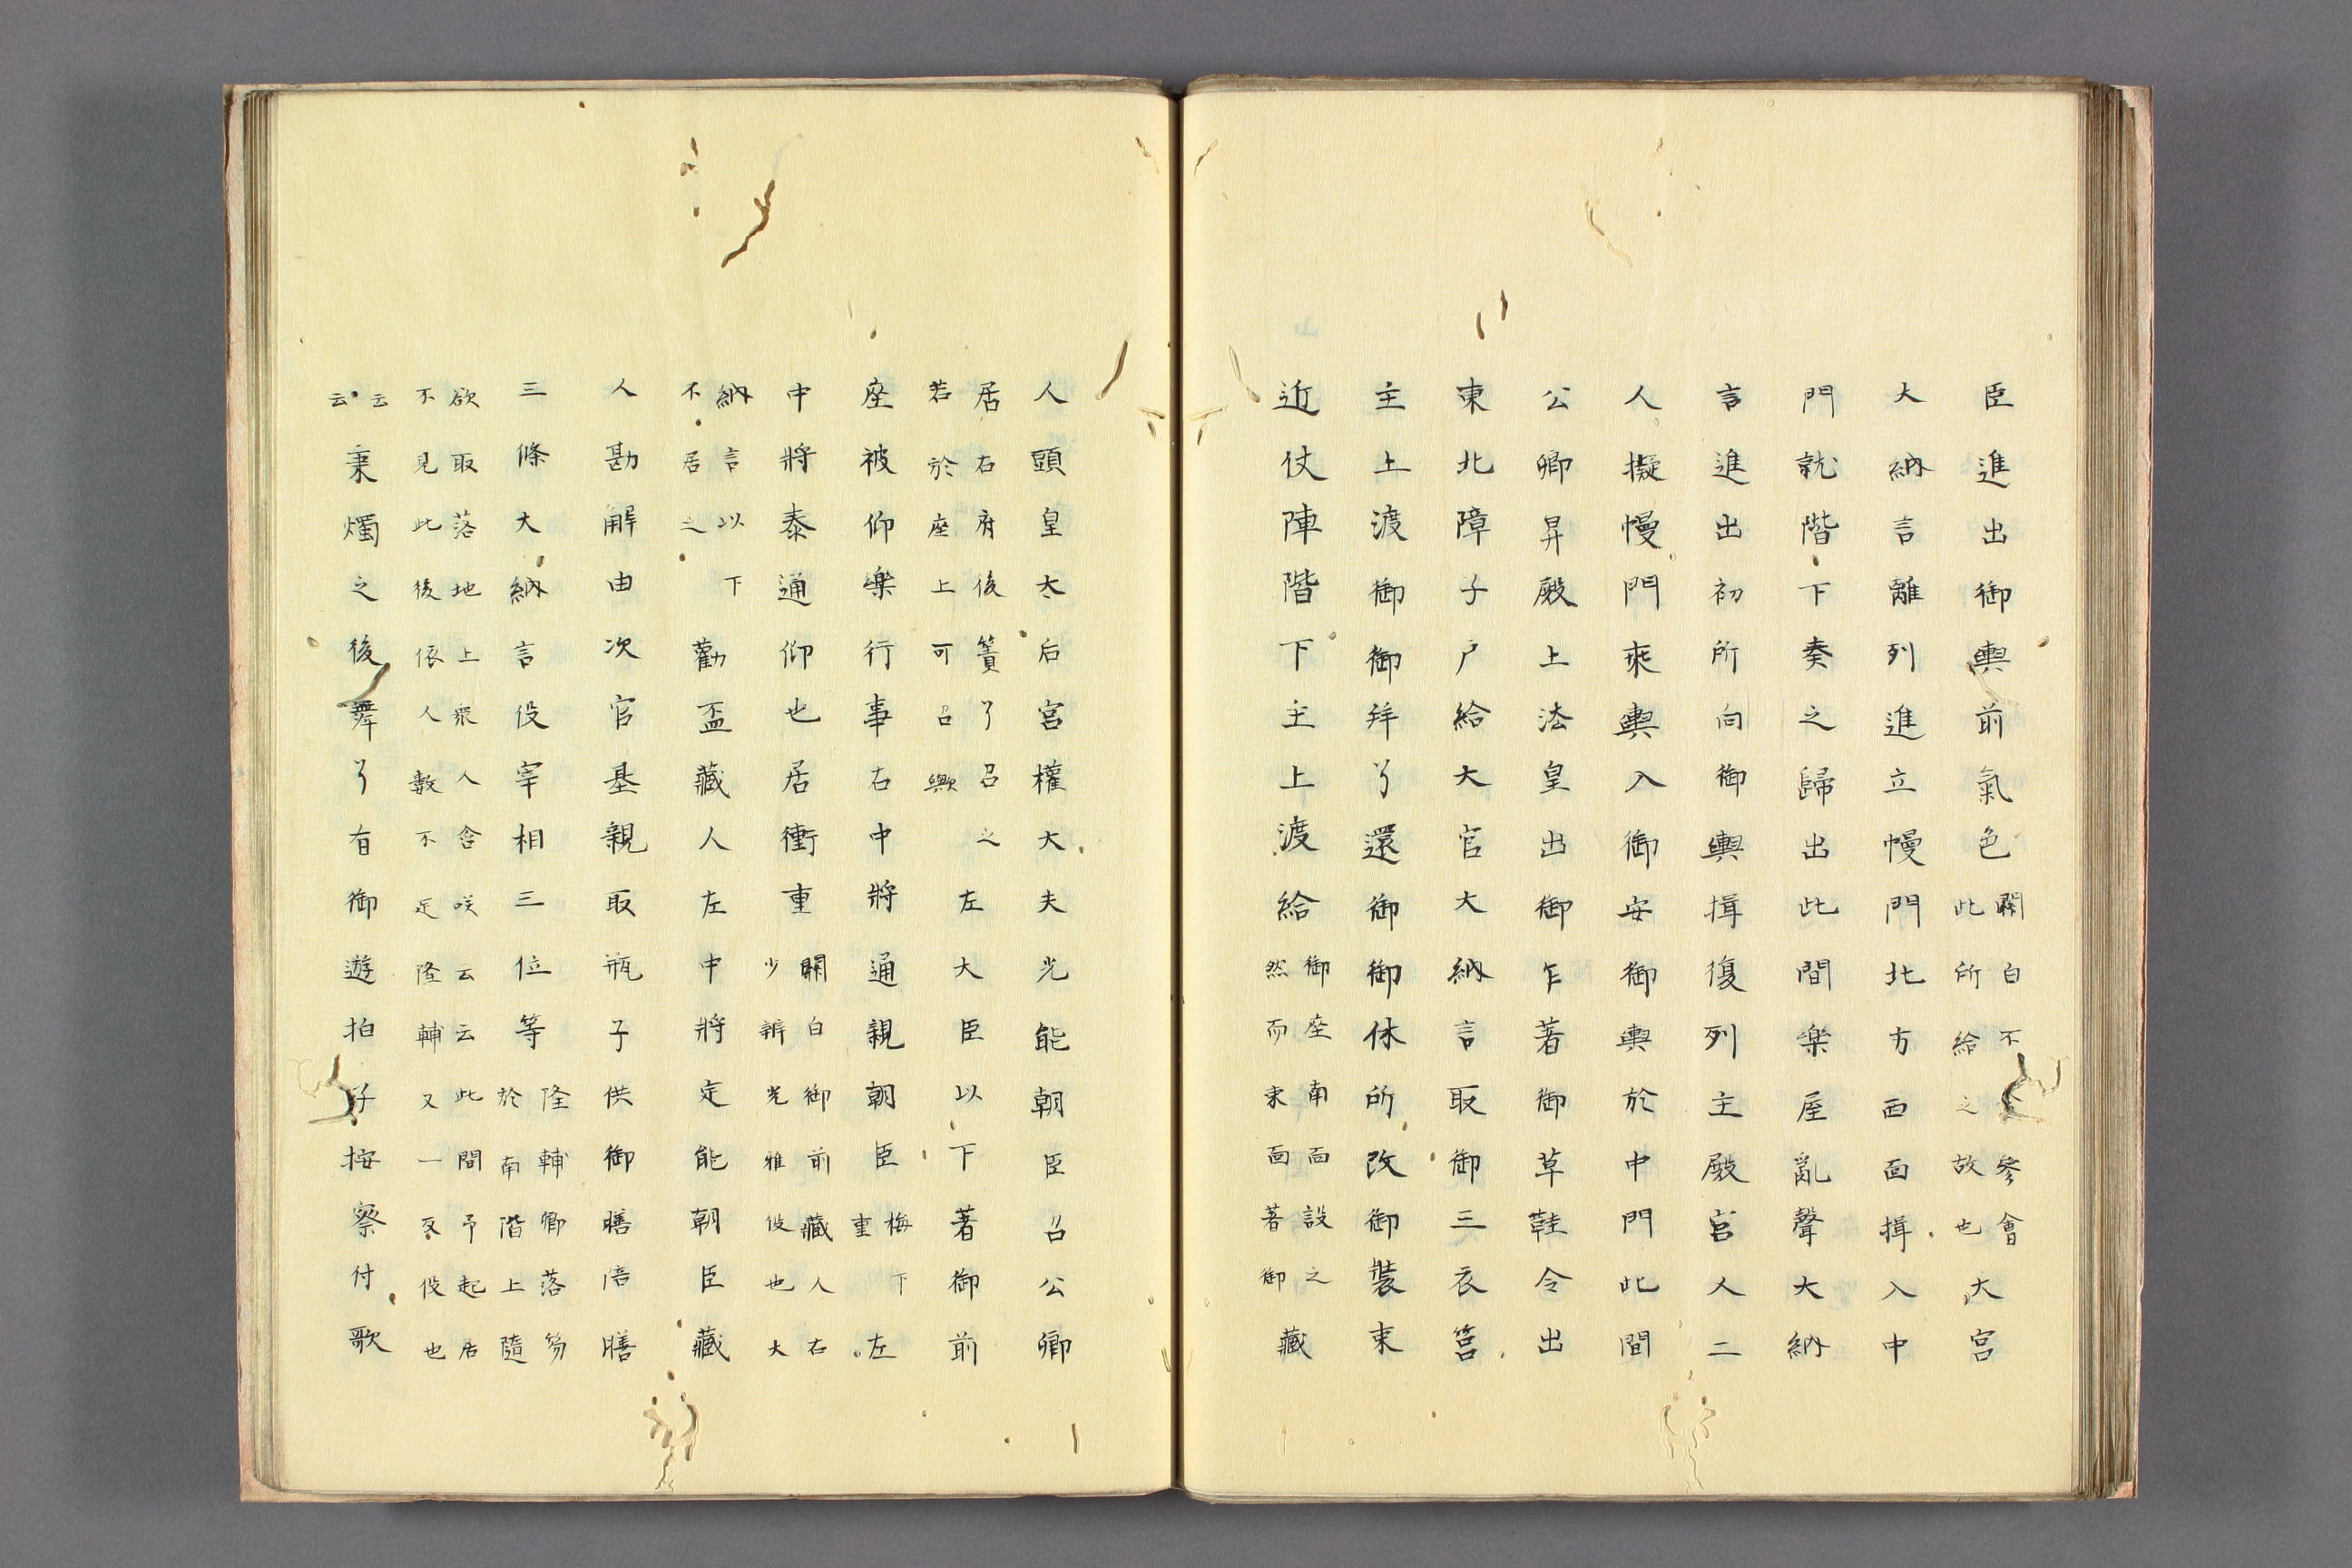 臣進出御輿前氣色關白不參會此所給之故也大宮
大納言離列進立幔門北方西面揖入中
門就階下奏之歸出此間楽屋亂聲大納
言進出初所向御輿揖復列主殿官人二
人擬幔門乘輿入御安御輿於中門此間
公卿昇殿上法皇出御乍著御草鞋令出
東北障子戶給大宮大納言取御三衣筥
主上渡御御拜了還御御休所改御裝束
近仗陣階下主上渡給御座南面設之然而東面著御藏
人頭皇太后宮權大夫光能朝臣召公卿
居右府後簀了召之若於座上可召歟左大臣以下著御前
座被仰樂行事右中將通親朝臣梅下重左
中將泰通仰也居衝重關白御前藏人右少辨光雅役也大
納言以下不居之勸盃藏人左中將定能朝臣藏
人勘解由次官基親取瓶子供御膳陪膳
三條大納言役宰相三位等隆輔卿落笏於南階上隨
欲取落地上眾人含咲云云此間予起居不見此後依人數不足隆輔又一反役也
云云秉燭之後舞了有御遊拍子按察付歌